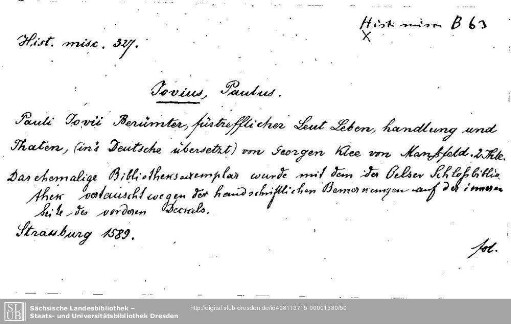 Hist. misc. B 63
X
Hist. misc. 327.
Jovius, Paulus.
Pauli Jovii Berümter, fürtrefflicher Leut Leben, handlung und
Thaten, (in's Deutsche übersetzt) von Georgen Klee von Mansfeld. 2 Thle.
Das ehemalige Bibliotheksexemplar wurde mit dem der Oelser Schloßbiblio
thek vertauscht wegen der handschriftlichen Bemerkungen auf der inneren
Seite des vorderen Deckels.
Strassburg 1589.
fol.
SLUB
Sächsische Landesbibliothek –
Staats- und Universitätsbibliothek Dresden